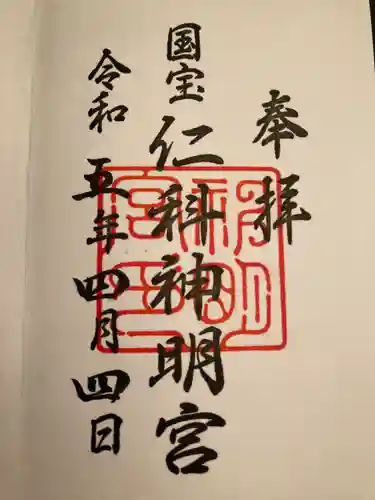 奉拝
国宝 仁科神明宮
令和五年四月四日
神明宮印